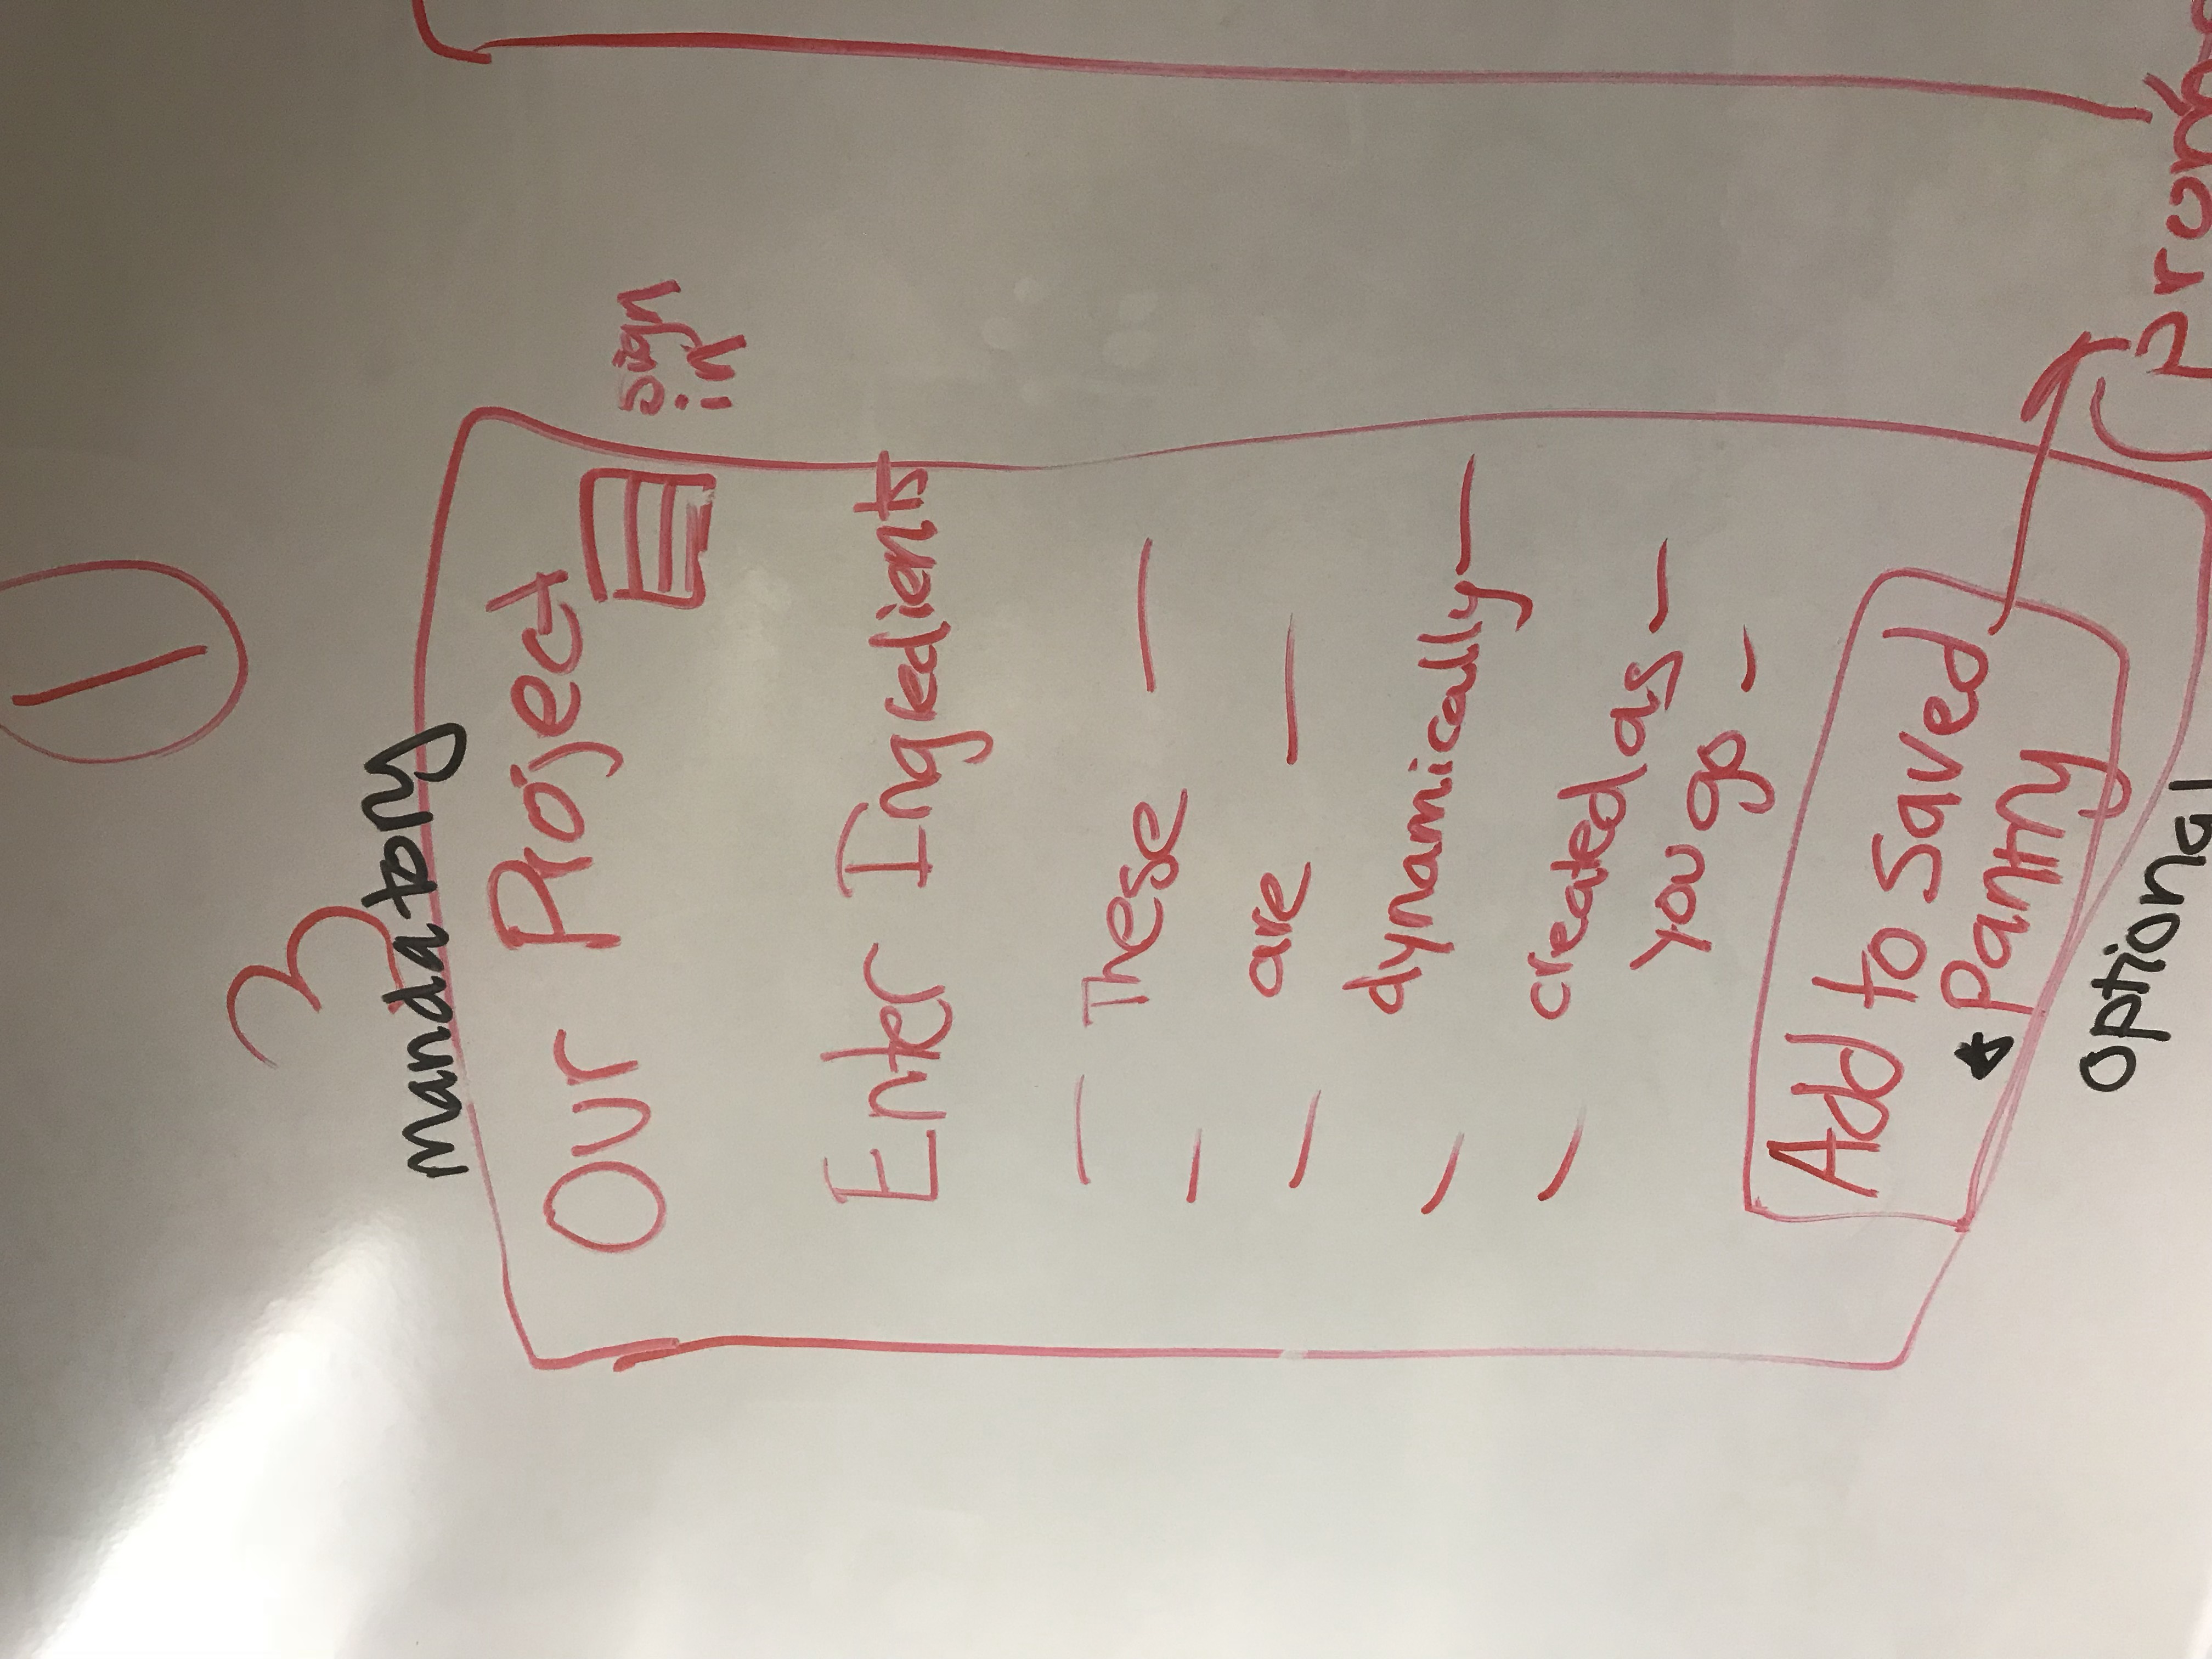 1
3
mandatory
Our Project
sign
in
Enter Ingredients
These
are
dynamically
created as
you go
Add to saved
Pantry
optional